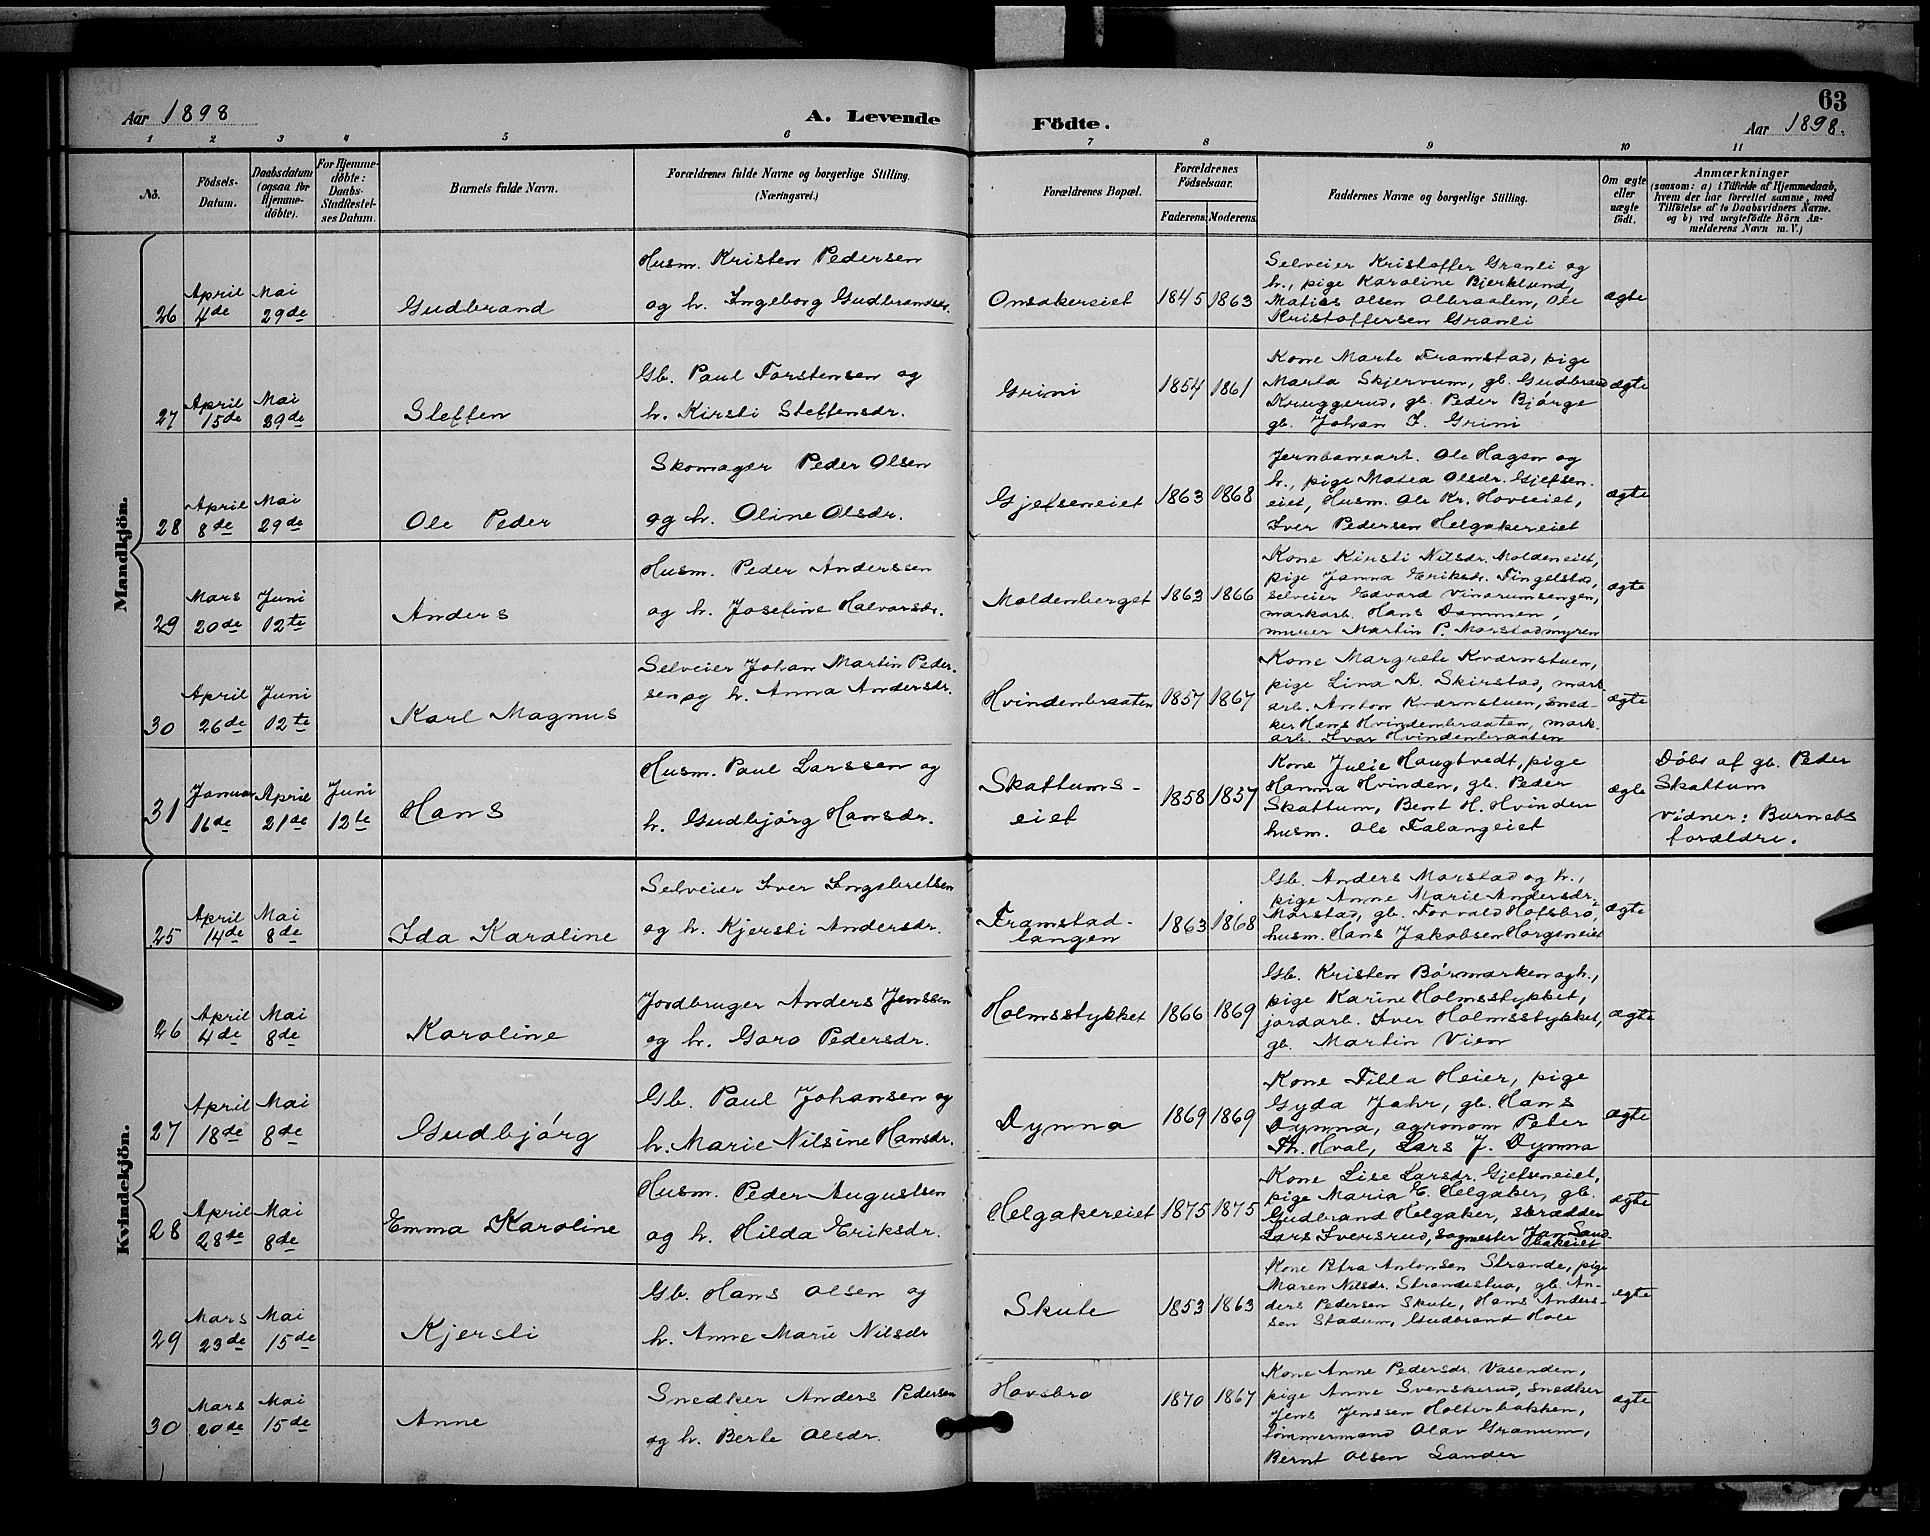 Aar 1898
A. Levende
Födte.
63
Aar 1898.
1 2 3 4 5 6 7 8 9 10 11
No.
Födsels-
Datum.
Daabsdatum
(ogsaa for
Hjemme-
döbte).
For Hjemme-
döbte:
Daabs-
Stadfæstel-
ses Datum.
Barnets fulde Navn.
Forældrenes fulde Navne og borgerlige Stilling.
(Næringsvei.)
Forældrenes Bopæl.
Forældrenes
Födselsaar.
Faderens. Moderens.
Faddernes Navne og borgerlige Stilling.
Om ægte
eller
uægte
födt.
Anmærkninger
(saasom: a) i Tilfælde af Hjemmedaab,
hvem der har forrettet samme, med
Tilföielse af to Daabsvidners Navne.
og b) ved uægtefödte Börn An-
melderens Navn m. V.)
Mandkjön.
26
April
4de
Mai
29de
Gudbrand
Husm. Kristen Pedersen
og h. Ingeborg Gudbrandsdr.
Onsakereiet
1845 1863
Selveier Kristoffer Granli og
h., pige Karoline Bjerklund,
Matias Olsen Olbraaten, Ole
Kristoffersen Granli
ægte
27
April
15de
Mai
29de
Steffen
Gb. Paul Torstensen og
h. Kirsti Steffensdr.
Grini
1854 1861
Kone Marte Framstad, pige
Marta Skjervum, gb. Gudbrand
Kruggerud, gb. Peder Bjørge
gb. Johan T. Grini
ægte
28
April
8de
Mai
29de
Ole Peder
Skomager Peder Olsen
og h. Oline Olsdr.
Gjefseneiet
1863 1868
Jernbanearb. Ole Hagen og
h., pige Matea Olsdr. Gjefsen-
eiet, Husm. Ole Kr. Hovseiet,
Iver Pedersen Helgakereiet
ægte
29
Mars
20de
Juni
12te
Anders
Husm. Peder Anderssen
og h. Josefine Halvorsdr.
Moldenberget
1863 1866
Kone Kirsti Nilsdr. Moldeneiet,
pige Janna Eriksdr. Tingelstad,
selveier Edvard Vinorumsengen,
markarb. Hans Dammen,
murer Martin P. Morstadmyren
ægte
30
April
26de
Juni
12te
Karl Magnus
Selveier Johan Martin Peder-
sen og h. Anna Andersdr.
Hvindenbraaten
1857 1867
Kone Margrete Kværnstuen,
pige Lina A. Skirstad, mark-
arb. Anton Kværnstuen, sned-
ker Hans Hvindenbraaten, mark-
arb. Ivar Hvindenbraaten
ægte
31
Januar
16de
April
21de
Juni
12te
Hans
Husm. Paul Larssen og
h. Gudbjørg Hansdr.
Skattums-
eiet
1858 1857
Kone Julie Haugtvedt, pige
Hanna Hvinden, gb. Peder
Skattum, Bent H. Hvinden
husm. Ole Falangeiet
ægte
Døbt af gb. Peder
Skattum
Vidner: Barnets
forældre.
Kvindekjön.
25
April
14de
Mai
8de
Ida Karoline
Selveier Iver Ingebretsen
og h. Kjersti Andersdr.
Framstad-
tangen
1863 1868
Gb. Anders Morstad og h.,
pige Anne Marie Andersdr.
Morstad, gb. Torvald Hofsbro,
husm. Hans Jakobsen Horgeneiet
ægte
26
April
4de
Mai
8de
Karoline
Jordbruger Anders Jenssen
og h. Goro Pedersdr.
Holmsstykket
1866 1869
Gb. Kristen Børmarken og h.,
pige Karine Holmsstykket,
jordarb. Iver Holmsstykket,
gb. Martin Vien
ægte
27
April
18de
Mai
8de
Gudbjørg
Gb. Paul Johansen og
h. Marie Nilsine Hansdr.
Dynna
1869 1869
Kone Tilla Heier, pige
Gyda Jahr, gb. Hans
Dynna, agronom Peter
Th. Hval, Lars J. Dynna
ægte
28
April
28de
Mai
8de
Emma Karoline
Husm. Peder Augustsen
og h. Hilda Eriksdr.
Helgakereiet
1875 1875
Kone Lise Larsdr. Gjefseneiet,
pige Maria E. Helgaker, gb.
Gudbrand Helgaker, skrædder
Lars Iversrud, sagmester Jan Sand-
bakeiet
ægte
29
Mars
23de
Mai
15de
Kjersti
Gb. Hans Olsen og
h. Anne Marie Nilsdr
Skute
1853 1863
Kone Petra Antonsen Strande, pige
Maren Nilsdr. Strandestua, gb. An-
ders Pedersen Skute, Hans Anders-
sen Stadum, Gudbrand Hole
ægte
30
Mars
20de
Mai
15de
Anne
Snedker Anders Pedersen
og h. Berte Olsdr.
Hovsbro
1870 1867
Kone Anne Pedersdr. Vasenden,
pige Anne Svenskerud, snedker
Jens Jenssen Holterbakken,
tømmermand Olav Granum,
Bernt Olsen Sander
ægte